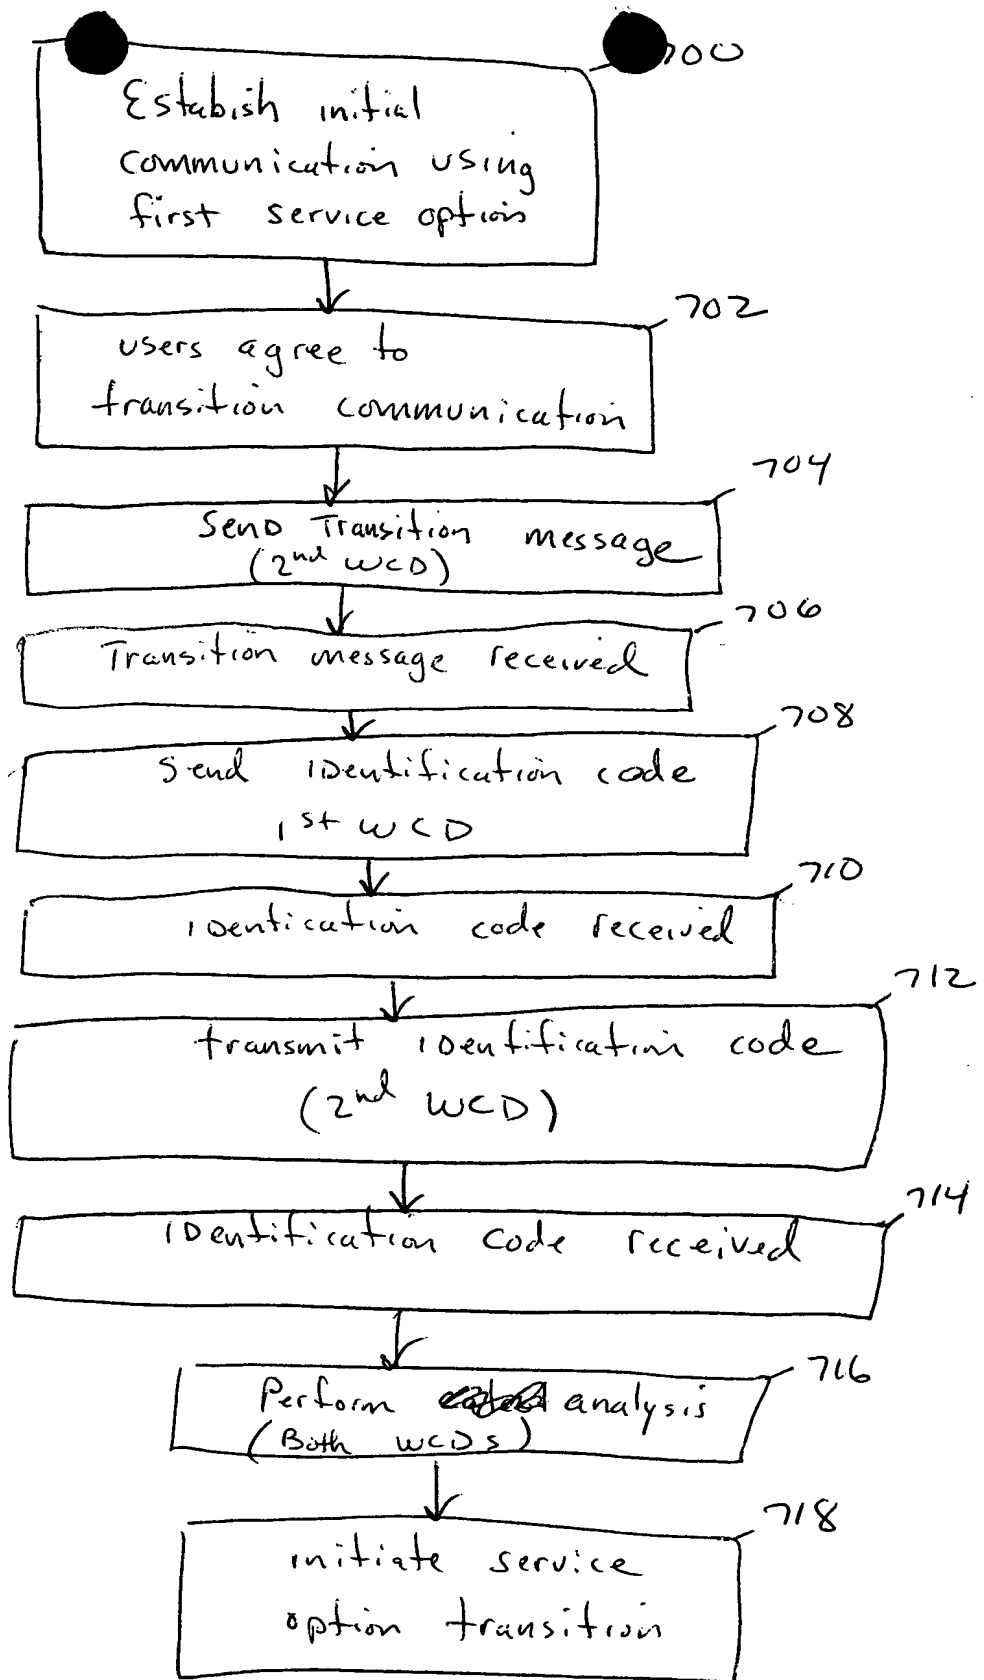 700
Estabish initial
communication using
first service option
702
users agree to
transition communication
704
Send Transition message
(2nd WCD)
706
Transition message received
708
Send identification code
1st WCD
710
identication code received
712
transmit identification code
(2nd WCD)
714
identification code received
716
Perform analysis
(Both WCDs)
718
initiate service
option transition